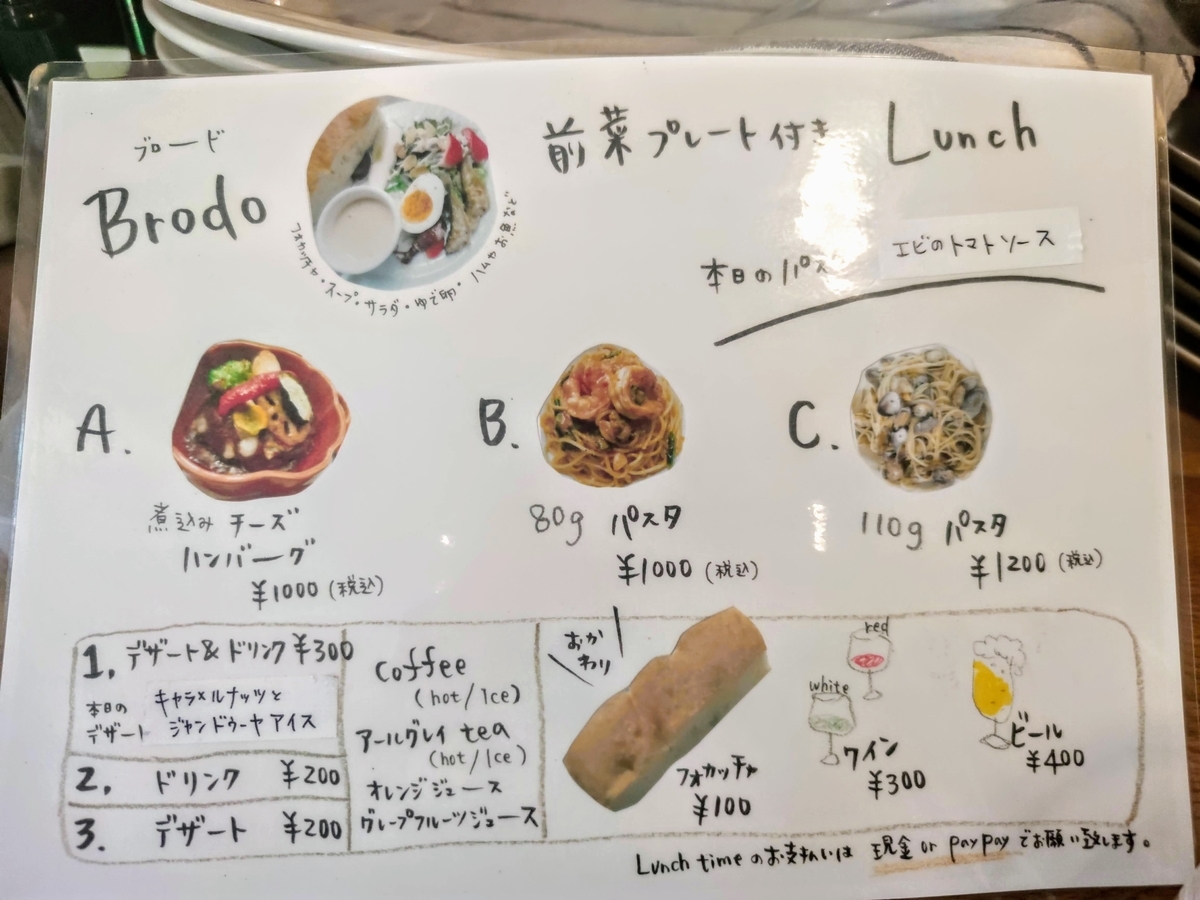 ブロード
Brodo
フォカッチャ・スープ・サラダ・ゆで卵・ハムやお魚など
前菜プレート付き Lunch
本日のパス
エビのトマトソース
A.
煮込みチーズ
ハンバーグ
¥1000(税込)
B.
80g パスタ
¥1000(税込)
C.
110g パスタ
¥1200(税込)
1. デザート&ドリンク ¥300
本日の
デザート
キャラメルナッツと
ジャンドゥーヤアイス
2. ドリンク ¥200
3. デザート ¥200
Coffee
(hot/Ice)
アールグレイ tea
(hot/Ice)
オレンジジュース
グレープフルーツジュース
おか
わり
フォカッチャ
¥100
red
white
ワイン
¥300
ビール
¥400
Lunch timeのお支払いは 現金 or paypay でお願い致します。